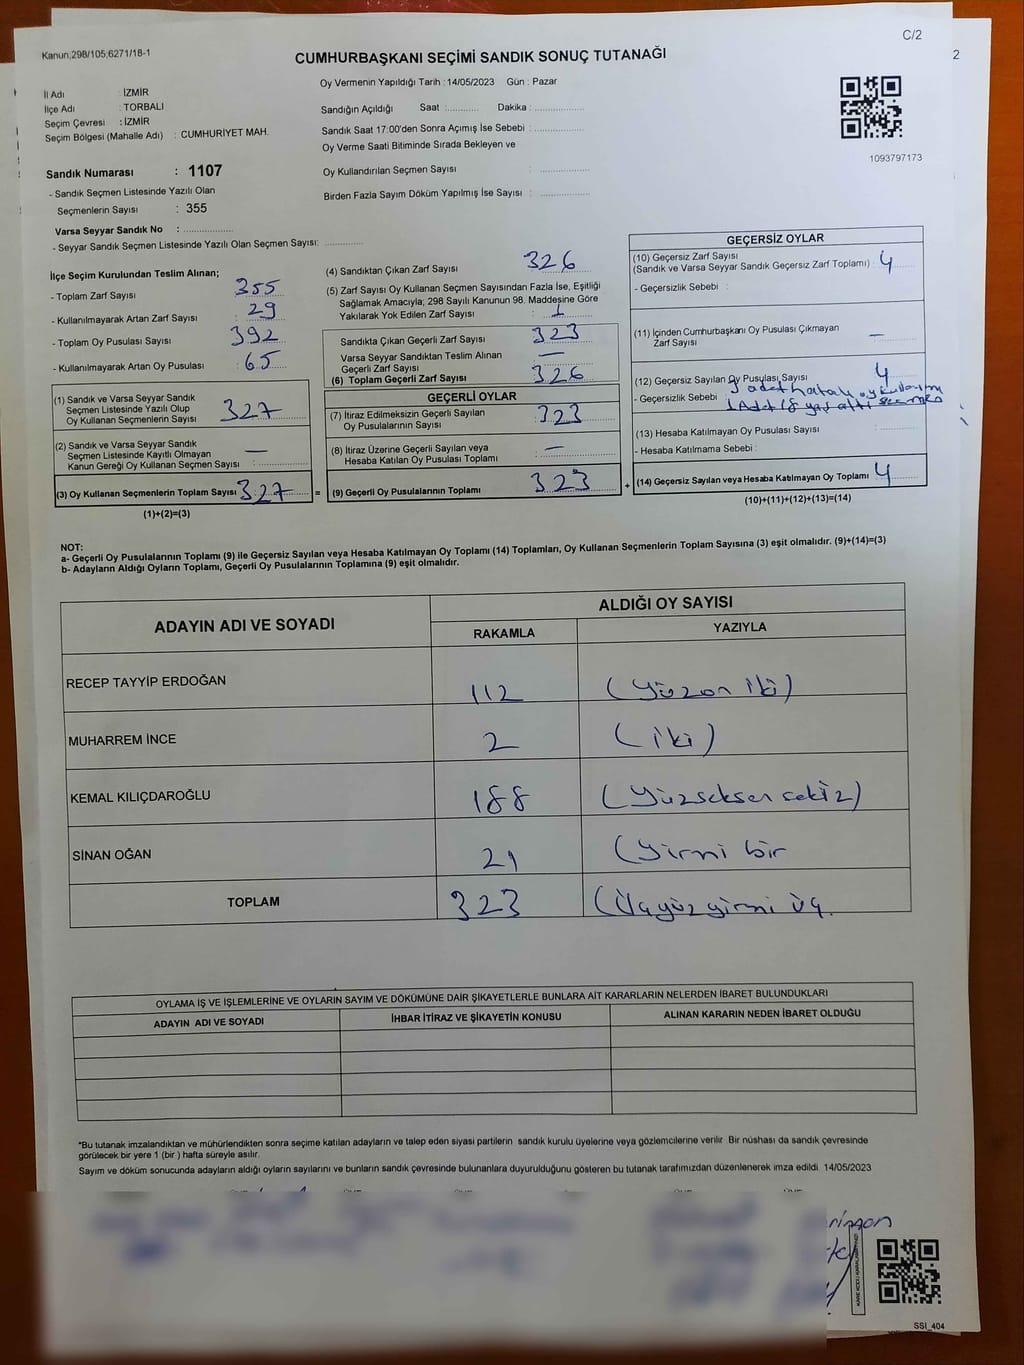 C/2
2
Kanun;298/105;6271/18-1
CUMHURBAŞKANI SEÇİMİ SANDIK SONUÇ TUTANAĞI
Oy Vermenin Yapıldığı Tarih : 14/05/2023 Gün : Pazar
İl Adı : İZMİR
İlçe Adı : TORBALI
Seçim Çevresi : İZMİR
Seçim Bölgesi (Mahalle Adı) : CUMHURİYET MAH.
Sandığın Açıldığı Saat :........... Dakika :................
Sandık Saat 17:00'den Sonra Açımış İse Sebebi :................
Oy Verme Saati Bitiminde Sırada Bekleyen ve
Oy Kullandırılan Seçmen Sayısı :................
Birden Fazla Sayım Döküm Yapılmış İse Sayısı :................
1093797173
Sandık Numarası : 1107
- Sandık Seçmen Listesinde Yazılı Olan
Seçmenlerin Sayısı : 355
Varsa Seyyar Sandık No :................
- Seyyar Sandık Seçmen Listesinde Yazılı Olan Seçmen Sayısı:............
İlçe Seçim Kurulundan Teslim Alınan;
- Toplam Zarf Sayısı : 355
- Kullanılmayarak Artan Zarf Sayısı : 29
- Toplam Oy Pusulası Sayısı : 392
- Kullanılmayarak Artan Oy Pusulası : 65
(1) Sandık ve Varsa Seyyar Sandık
Seçmen Listesinde Yazılı Olup
Oy Kullanan Seçmenlerin Sayısı : 327
(2) Sandık ve Varsa Seyyar Sandık
Seçmen Listesinde Kayıtlı Olmayan
Kanun Gereği Oy Kullanan Seçmen Sayısı : —
(3) Oy Kullanan Seçmenlerin Toplam Sayısı : 327 =
(1)+(2)=(3)
(4) Sandıktan Çıkan Zarf Sayısı : 326
(5) Zarf Sayısı Oy Kullanan Seçmen Sayısından Fazla İse, Eşitliği
Sağlamak Amacıyla; 298 Sayılı Kanunun 98. Maddesine Göre
Yakılarak Yok Edilen Zarf Sayısı : 1
Sandıkta Çıkan Geçerli Zarf Sayısı : 323
Varsa Seyyar Sandıktan Teslim Alınan
Geçerli Zarf Sayısı : —
(6) Toplam Geçerli Zarf Sayısı : 326
GEÇERLİ OYLAR
(7) İtiraz Edilmeksizin Geçerli Sayılan
Oy Pusulalarının Sayısı : 323
(8) İtiraz Üzerine Geçerli Sayılan veya
Hesaba Katılan Oy Pusulası Toplamı : —
(9) Geçerli Oy Pusulalarının Toplamı : 323 +
GEÇERSİZ OYLAR
(10) Geçersiz Zarf Sayısı
(Sandık ve Varsa Seyyar Sandık Geçersiz Zarf Toplamı) : 4
- Geçersizlik Sebebi :
(11) İçinden Cumhurbaşkanı Oy Pusulası Çıkmayan
Zarf Sayısı : —
(12) Geçersiz Sayılan Oy Pusulası Sayısı : 4
- Geçersizlik Sebebi : 3 adet hatalı oy kullanımı
1 Adet 18 yaş altı seçmen
(13) Hesaba Katılmayan Oy Pusulası Sayısı :
- Hesaba Katılmama Sebebi :
(14) Geçersiz Sayılan veya Hesaba Katılmayan Oy Toplamı : 4
(10)+(11)+(12)+(13)=(14)
NOT:
a- Geçerli Oy Pusulalarının Toplamı (9) ile Geçersiz Sayılan veya Hesaba Katılmayan Oy Toplamı (14) Toplamları, Oy Kullanan Seçmenlerin Toplam Sayısına (3) eşit olmalıdır. (9)+(14)=(3)
b- Adayların Aldığı Oyların Toplamı, Geçerli Oy Pusulalarının Toplamına (9) eşit olmalıdır.
ADAYIN ADI VE SOYADI ALDIĞI OY SAYISI
RAKAMLA YAZIYLA
RECEP TAYYİP ERDOĞAN 112 (Yüzon iki)
MUHARREM İNCE 2 (iki)
KEMAL KILIÇDAROĞLU 188 (Yüzseksen sekiz)
SİNAN OĞAN 21 (Yirmi bir
TOPLAM 323 (Üçyüz yirmi üç.
OYLAMA İŞ VE İŞLEMLERİNE VE OYLARIN SAYIM VE DÖKÜMÜNE DAİR ŞİKAYETLERLE BUNLARA AİT KARARLARIN NELERDEN İBARET BULUNDUKLARI
ADAYIN ADI VE SOYADI İHBAR İTİRAZ VE ŞİKAYETİN KONUSU ALINAN KARARIN NEDEN İBARET OLDUĞU
*Bu tutanak imzalandıktan ve mühürlendikten sonra seçime katılan adayların ve talep eden siyasi partilerin sandık kurulu üyelerine veya gözlemcilerine verilir. Bir nüshası da sandık çevresinde
görülecek bir yere 1 (bir ) hafta süreyle asılır.
Sayım ve döküm sonucunda adayların aldığı oyların sayılarını ve bunların sandık çevresinde bulunanlara duyurulduğunu gösteren bu tutanak tarafımızdan düzenlenerek imza edildi. 14/05/2023
SSİ_404